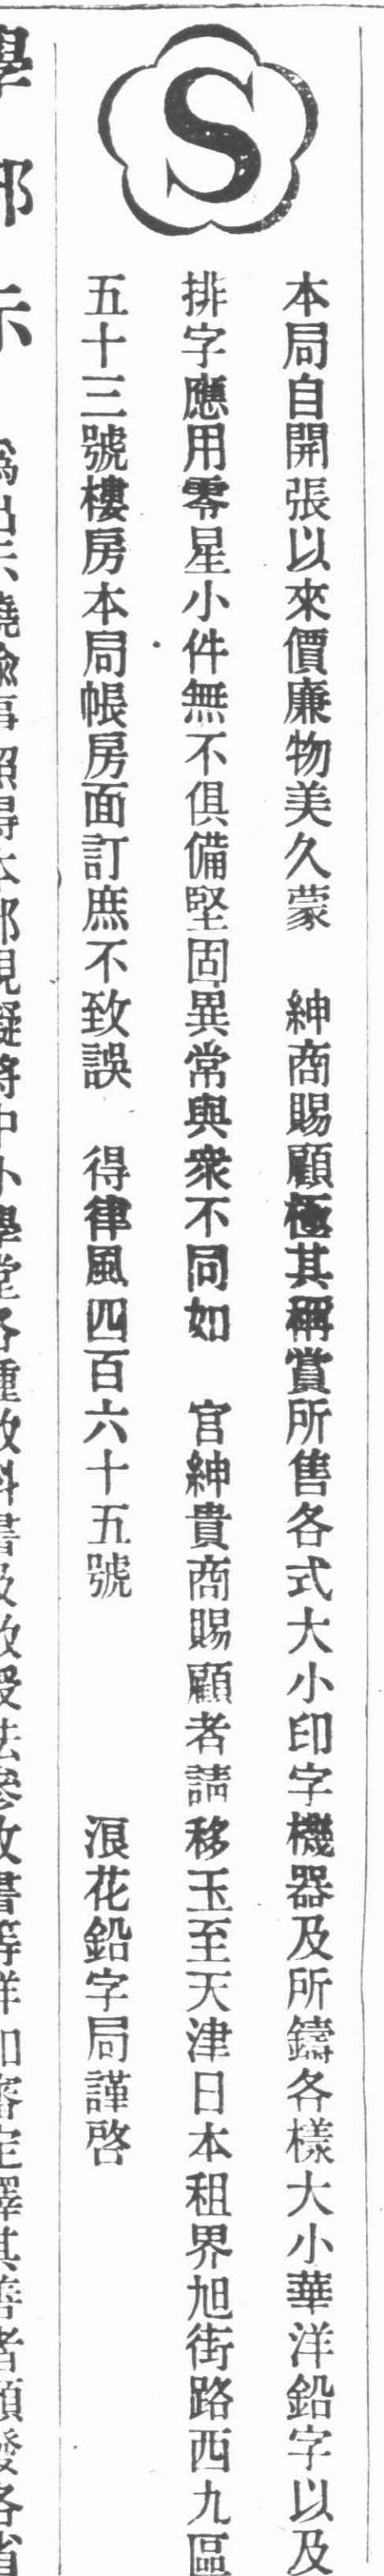 S
本局自開張以來價廉物美久蒙　紳商賜顧極其稱賞所售各式大小印字機器及所鑄各樣大小華洋鉛字以及
排字應用零星小件無不俱備堅固異常與衆不同如　官紳貴商賜顧者請移玉至天津日本租界旭街路西九區
五十三號樓房本局帳房面訂庶不致誤　得律風四百六十五號　浪花鉛字局謹啓
學部示　爲出示曉諭事照得本部現擬將中小學堂各種教科書及教授法參攷書等詳加審定擇其善者頒發各省